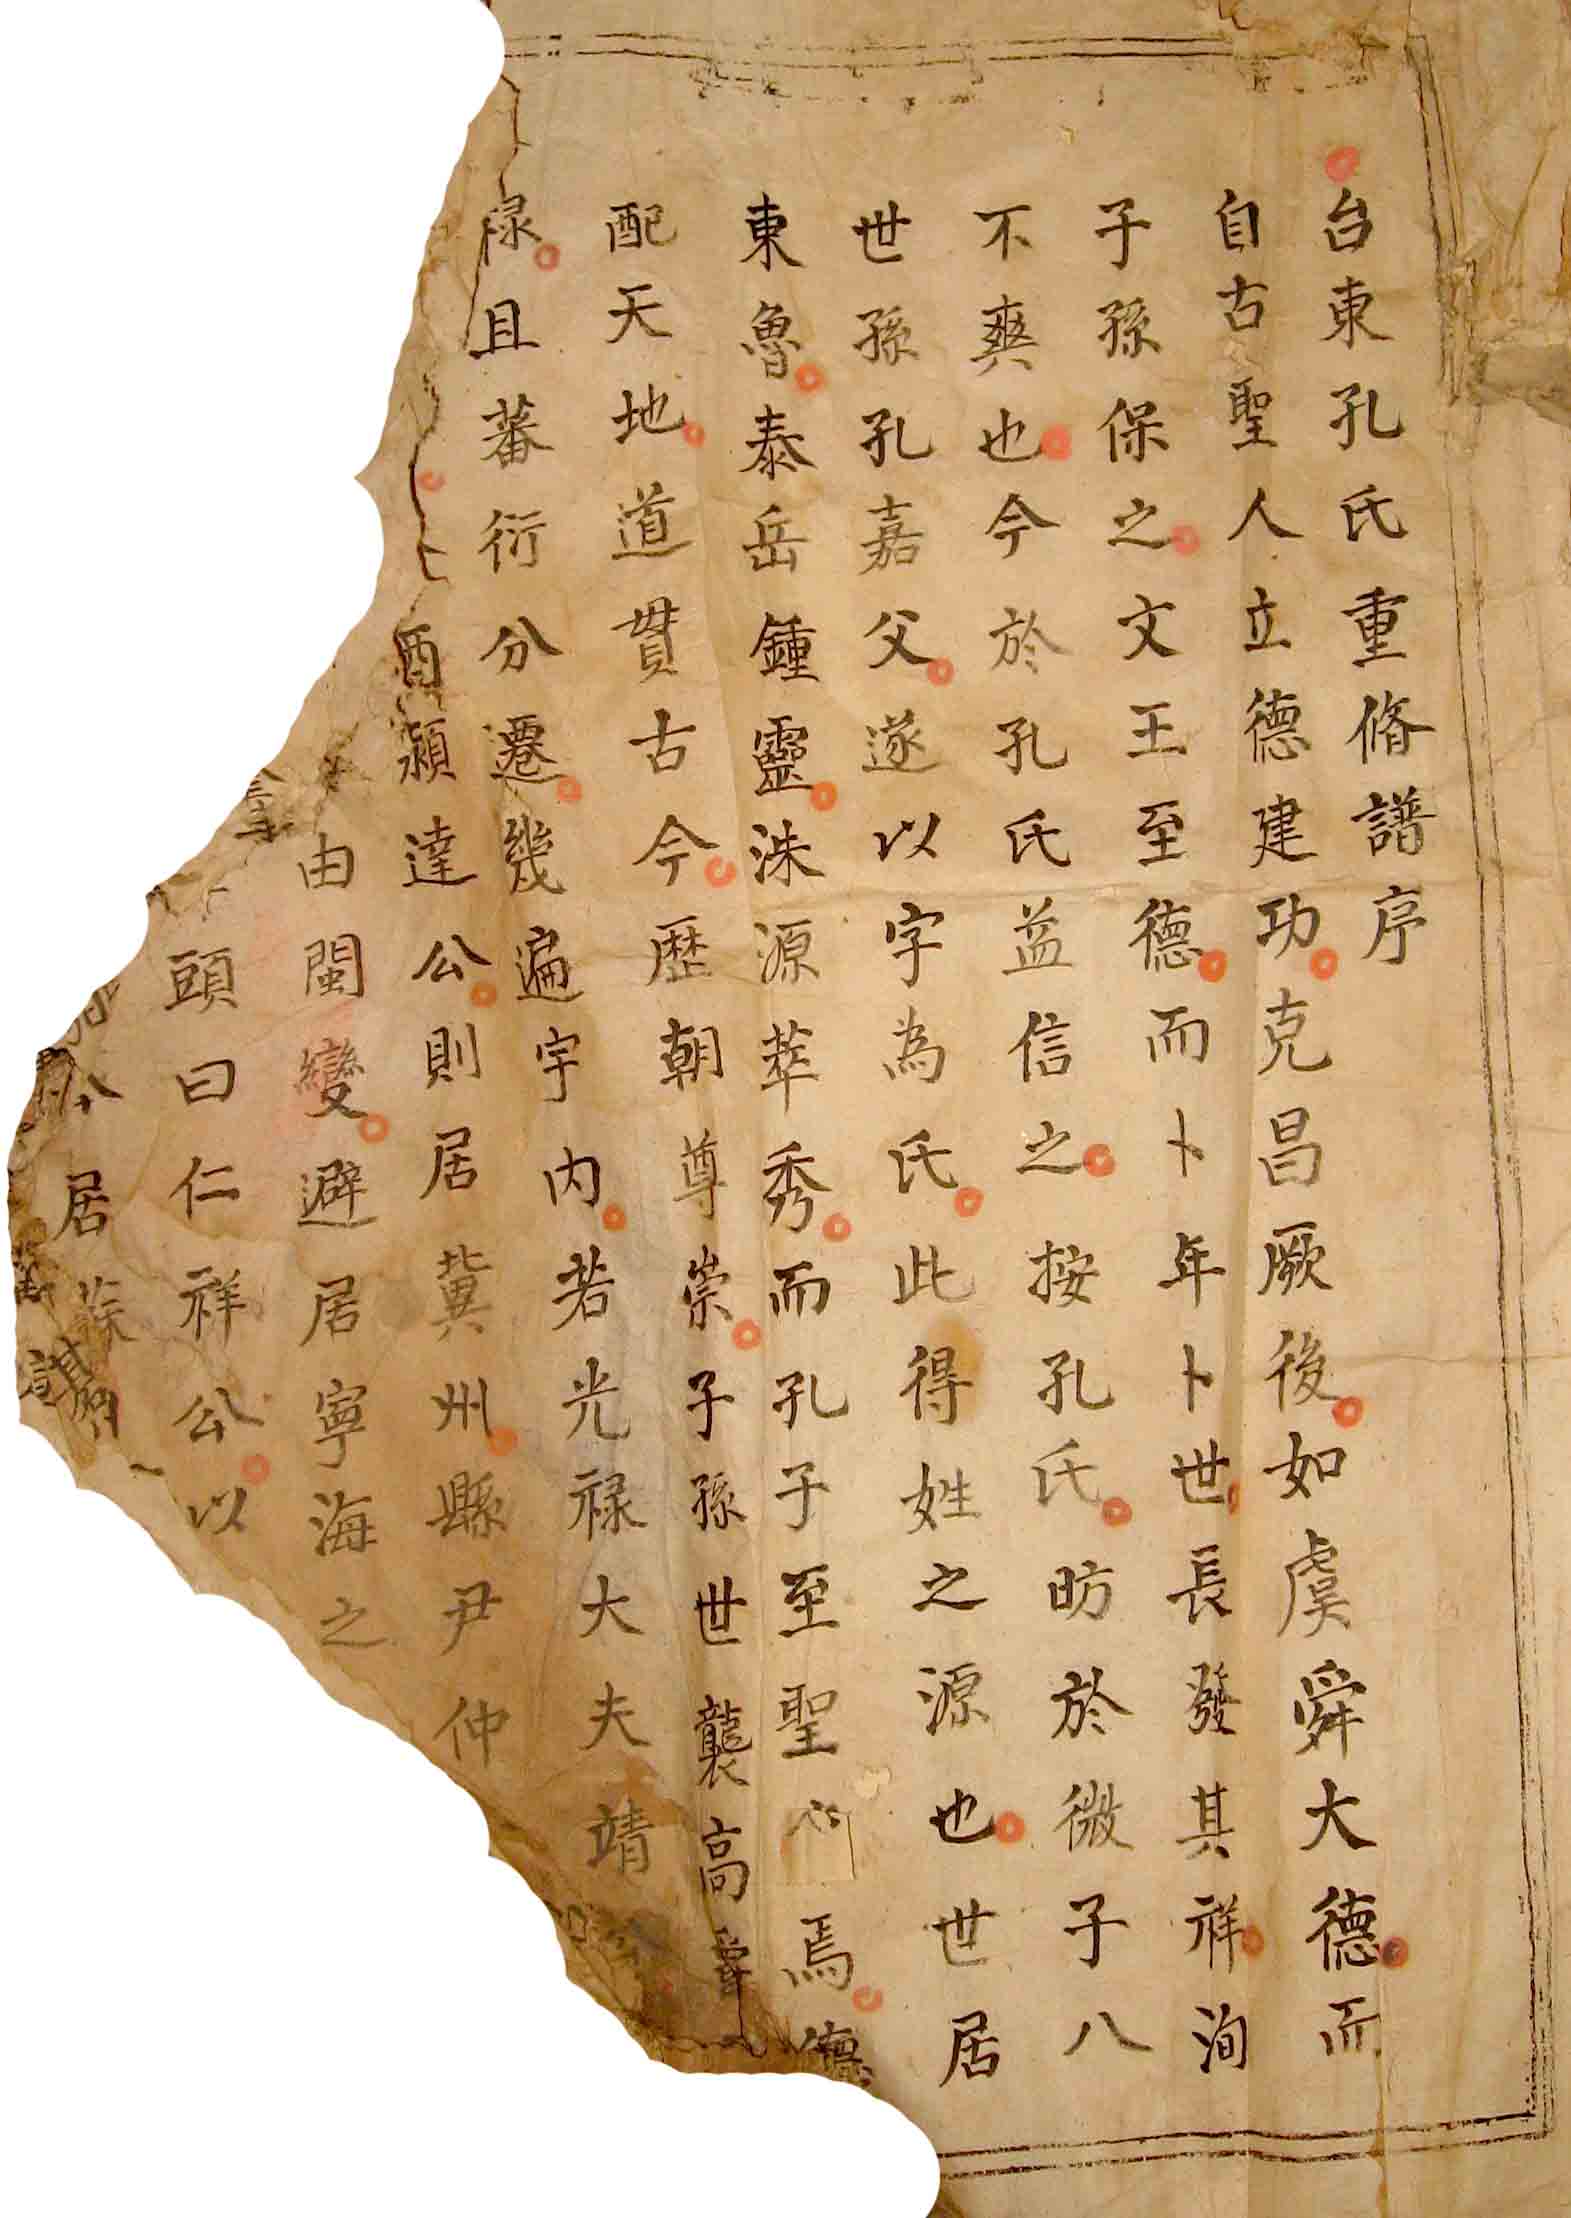 台東孔氏重脩譜序
自古聖人立德建功克昌厥後如虞舜大德而
子孫保之文王至德而卜年卜世長發其祥洵
不爽也今於孔氏益信之按孔氏昉於微子八
世孫孔嘉父遂以字為氏此得姓之源也世居
東魯泰岳鍾靈洙源萃秀而孔子至聖心焉德
配天地道貫古今歷朝尊崇子孫世襲高爵
祿且蕃衍分遷幾遍宇內若光祿大夫靖
酉潁達公則居冀州縣尹仲
由閩變避居寧海之
頭曰仁祥公以
公居